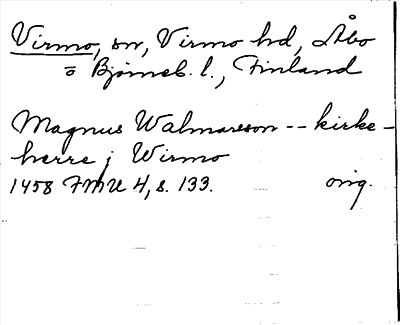 Virmo, sn, Virmo hd, Åbo
o Bjørneb. l., Finland
Magnus Walmarsson -- kirke-
herre j Wirmo
1458 FMU 4, s. 133. orig.